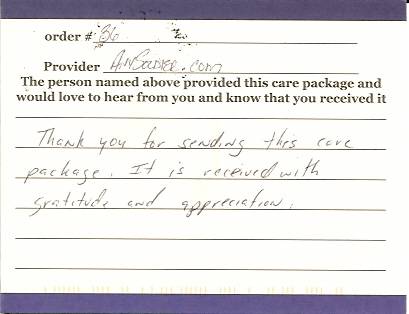 order # 36
Provider AnySoldier.com
The person named above provided this care package and
would love to hear from you and know that you received it
Thank you for sending this care
package. It is received with
gratitude and appreciation.